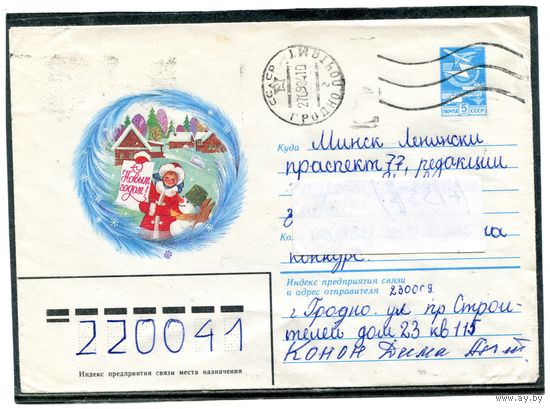 СССР
ПОЧТАМТ
ГРОДНО
ПОЧТА 5 СССР
С Новым годом!
Куда Минск Ленински
проспект 77, редакции
г
Ко
на
конкурс.
Индекс предприятия связи
и адрес отправителя 230009
г Гродно. ул пр Строи-
телей дом 23 кв 115
Конон Дима
220041
Индекс предприятия связи места назначения
www.ay.by